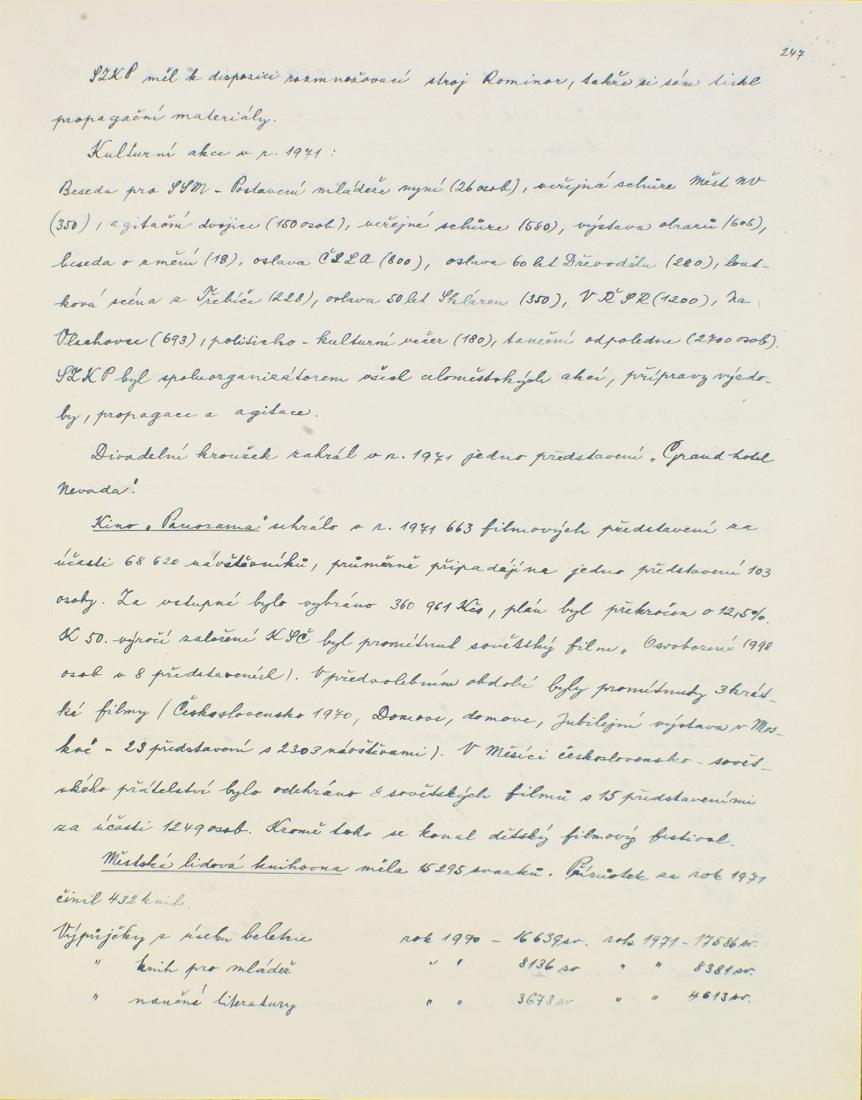 247
SZKP měl k disposici rozmnožovací stroj Rominor, takže si sám tiskl
propagační materiály.
Kulturní akce v r. 1971:
Beseda pro SSM - Postavení mládeže nyní (26 osob), veřejná schůze Měst NV
(350), agitační dvojice (150 osob), veřejné schůze (580), výstava obrazů (605),
beseda o umění (18), oslava ČSLA (800), oslava 60 let Dřevodělu (280), lout-
ková scéna z Třebíče (228), oslava 50 let Skláren (350), VŘSR (1200), Na
Vlachovce (693), politicko-kulturní večer (180), taneční odpoledne (2700 osob).
SZKP byl spoluorganizátorem všech celoměstských akcí, přípravy výzdo-
by, propagace a agitace.
Divadelní kroužek zahrál v r. 1971 jedno představení „Grand hotel
Nevada".
Kino „Panorama" sehrálo v r. 1971 663 filmových představení za
účasti 68 620 návštěvníků, průměrně připadají na jedno představení 103
osoby. Za vstupné bylo vybráno 360 961 Kčs, plán byl překročen o 12,5%.
K 50. výročí založení KSČ byl promítnut sovětský film „ Osvobození (998
osob v 8 představeních). V předvolebním období byly promítnuty 3 krát-
ké filmy (Československo 1970, Domove, domove, Jubilejní výstava v Mos-
kvě - 23 představení s 2303 návštěvami). V Měsíci československo-sovět-
ského přátelství bylo odehráno 8 sovětských filmů s 15 představeními
za účasti 1249 osob. Kromě toho se konal dětský filmový festival.
Městská lidová knihovna měla 15295 svazků. Přírůstek za rok 1971
činil 432 knih.
Výpůjčky z úseku beletrie rok 1970 - 16639 sv. rok 1971 - 17586 sv.
" knih pro mládež " " 8136 sv " " 8381 sv.
" naučné literatury " " 3678 sv " " 4613 sv.